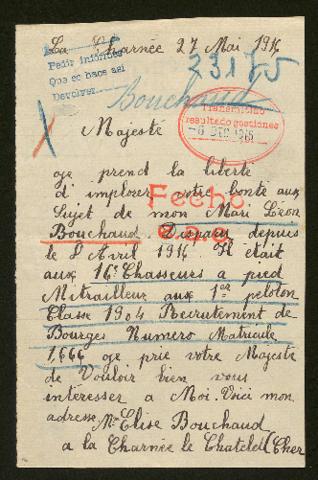 La Charnée 27 Mai 1916
Pedir informes
Que se hace así
Devolver
23175
Bouchaud
Transmitido
resultado gestiones
6 DIC 1916
Majesté
ge prend la liberté
d'implorer votre bonté aux
Sujet de mon Mari Léon
Bouchaud Disparu depuis
le 8 Avril 1916. Il était
aux 16e Chasseurs a pied
Mitrailleur aux 1er peloton
Classe 1904 Recrutement de
Bourges Numero Matricule
1,666 ge prie votre Majesté
de Vouloir bien vous
intéresser a Moi. Voici mon
adresse Me Elise Bouchaud
a la Charnée le Chatelet (Cher
Fecho